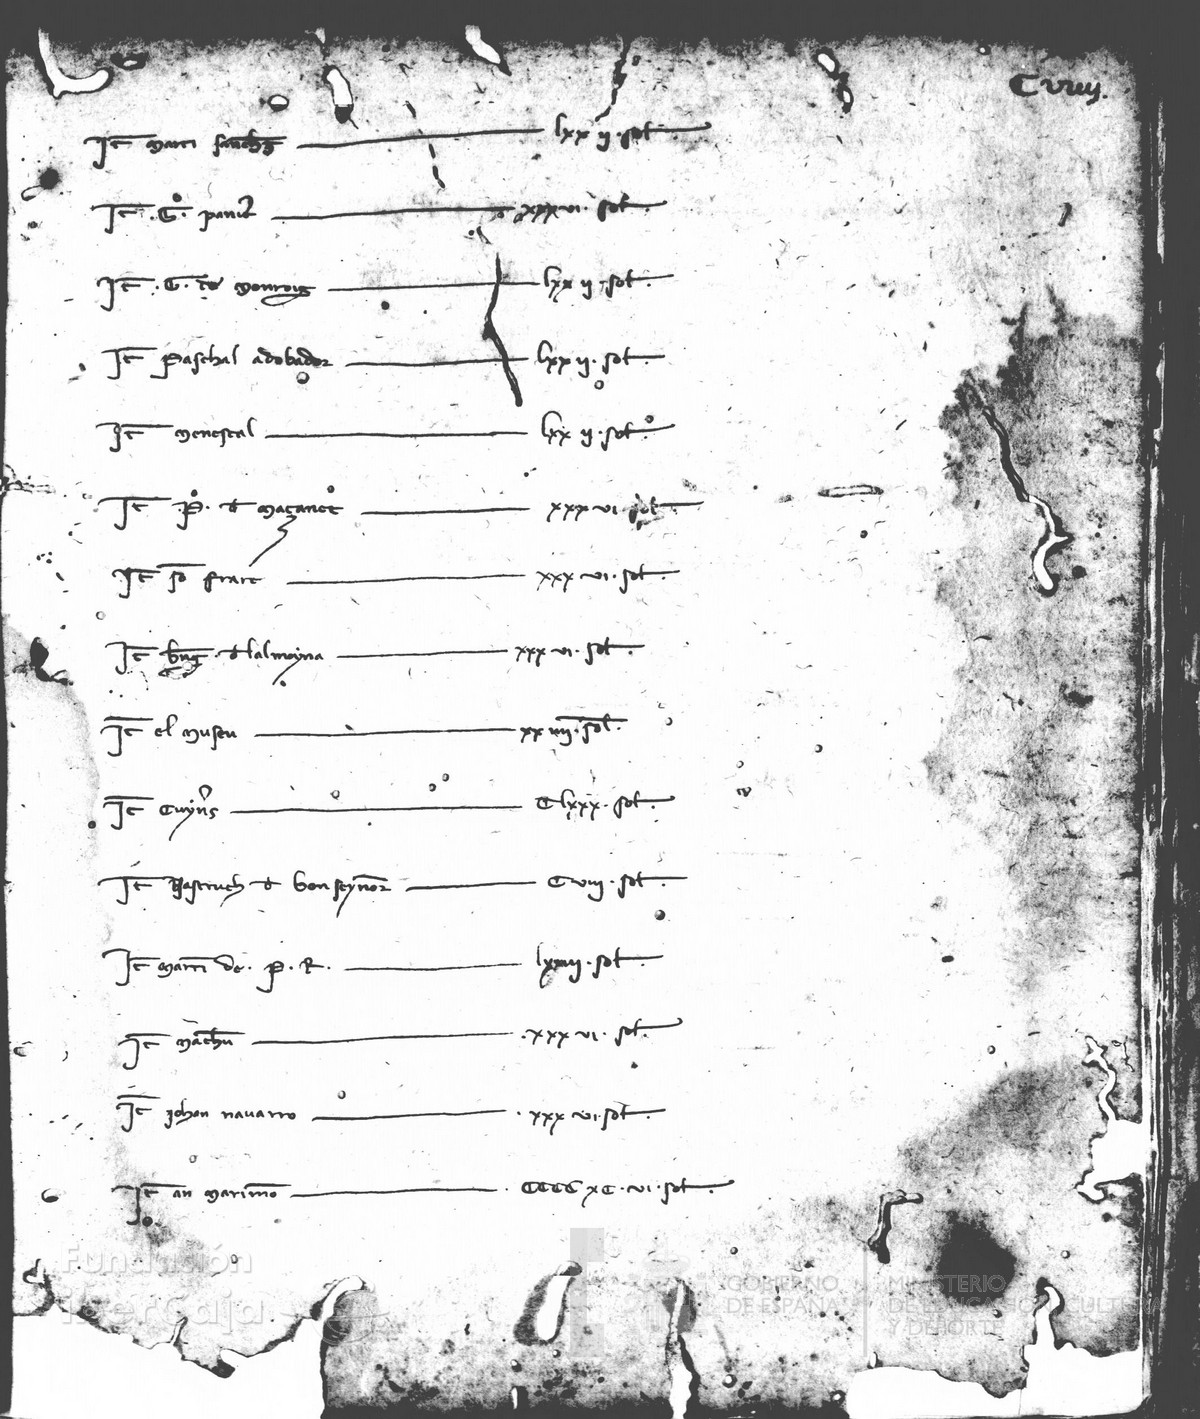 Cviiij.
It Marti Sanchz lxxij. sol.
It .G. panicer xxxvi. sol.
It .G. de Monroig lxxij. sol.
It Paschal adobador lxxij. sol.
It Menescal lxxij. sol.
It .P. d Maçanet xxxvi sol.
It frare xxxvi. sol.
It bng d lalmoyna xxxvi. sol.
It el Museu xxiiij. sol.
It Clxxx. sol.
It Jastruch d bonseynor Cviij. sol.
It Marti de. P. R. lxxij. sol.
It Macheu .xxxvi. sol.
It Johan navarro .xxxvi. sol.
It an Marimo . CCCC xC. vi. sol.
Fundación
iberCaja
GOBIERNO
DE ESPAÑA
MINISTERIO
DE EDUCACIÓN, CULTURA
Y DEPORTE